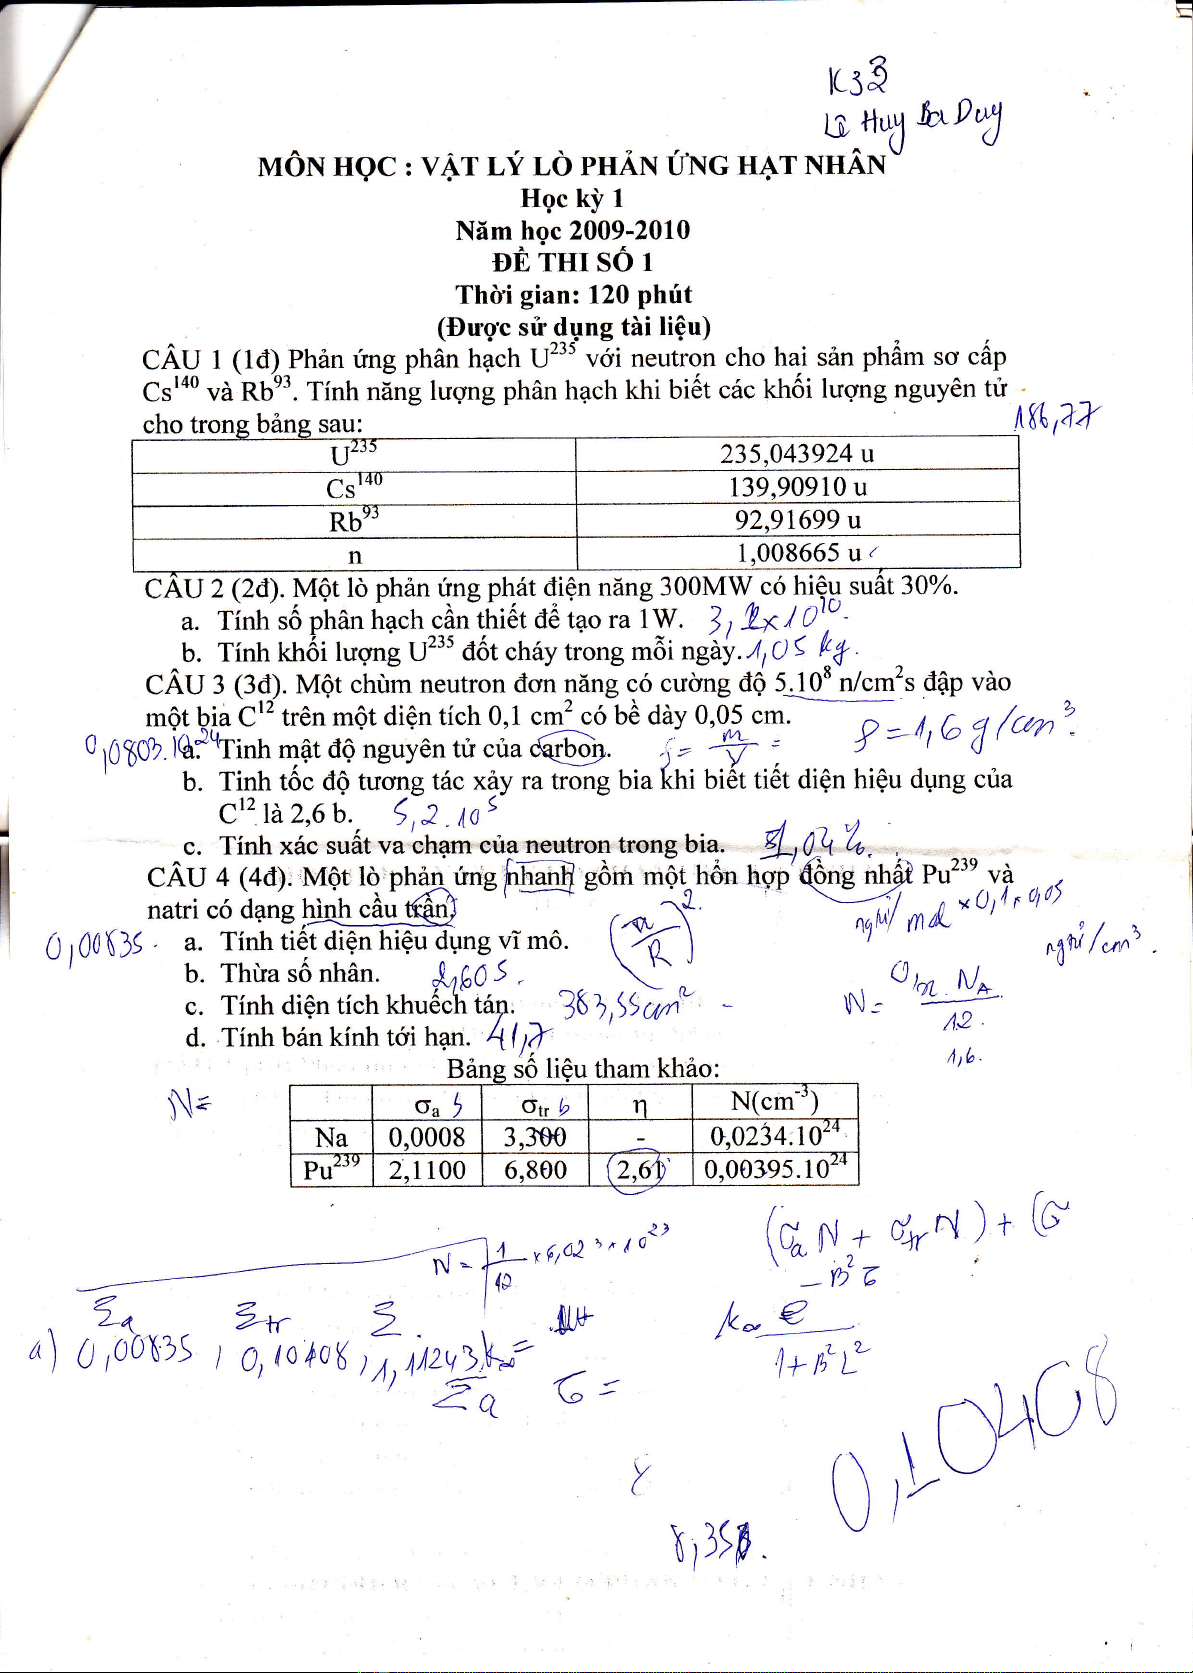 K33
Lê Huy Bá Duy
MÔN HỌC : VẬT LÝ LÒ PHẢN ỨNG HẠT NHÂN
Học kỳ 1
Năm học 2009-2010
ĐỀ THI SỐ 1
Thời gian: 120 phút
(Được sử dụng tài liệu)
CÂU 1 (1đ) Phản ứng phân hạch U²³⁵ với neutron cho hai sản phẩm sơ cấp
Cs¹⁴⁰ và Rb⁹³. Tính năng lượng phân hạch khi biết các khối lượng nguyên tử
cho trong bảng sau:
186,77
U²³⁵ 235,043924 u
Cs¹⁴⁰ 139,90910 u
Rb⁹³ 92,91699 u
n 1,008665 u
CÂU 2 (2đ). Một lò phản ứng phát điện năng 300MW có hiệu suất 30%.
a. Tính số phân hạch cần thiết để tạo ra 1W. 3,2x10¹⁰.
b. Tính khối lượng U²³⁵ đốt cháy trong mỗi ngày. 1,05 kg.
CÂU 3 (3đ). Một chùm neutron đơn năng có cường độ 5.10⁸ n/cm²s đập vào
một bia C¹² trên một diện tích 0,1 cm² có bề dày 0,05 cm.
0,0803.10²⁴ a. Tinh mật độ nguyên tử của carbon. ρ = m/V = ρ = 1,6 g/cm³.
b. Tinh tốc độ tương tác xảy ra trong bia khi biết tiết diện hiệu dụng của
C¹² là 2,6 b. 5,2.10⁵
c. Tính xác suất va chạm của neutron trong bia. 1,04%.
CÂU 4 (4đ). Một lò phản ứng nhanh gồm một hổn hợp đồng nhất Pu²³⁹ và
natri có dạng hình cầu trần.
ngtử/mol x 0,1 x 0,05
ngtử/cm³.
0,00835. a. Tính tiết diện hiệu dụng vĩ mô. (π/R)².
b. Thừa số nhân. 2,605.
c. Tính diện tích khuếch tán. 383,55cm²
N = . Nₐ / 12.
1,6.
d. Tính bán kính tới hạn. 41,7
Bảng số liệu tham khảo:
N=
σa b σtr b η N(cm⁻³)
Na 0,0008 3,300 - 0,0234.10²⁴
Pu²³⁹ 2,1100 6,800 2,61 0,00395.10²⁴
N = 1/12 x 6,023 x 10²³
(σa N + σtr N) + (σ
- B² τ
Σa Σtr Σ.
k∞ e / 1+B²L²
a) 0,00835 , 0,10408 , 1,11243, k∞ =
Σa τ =
0,10408
8,358.